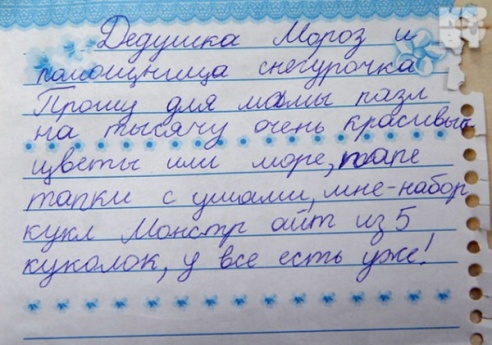 Дедушка Мороз и
помощница снегурочка
Прошу для мамы пазл
на тысячу очень красивый
цветы или море, папе
тапки с ушами, мне-набор
кукл Монстр айт из 5
куколок, у все есть уже!